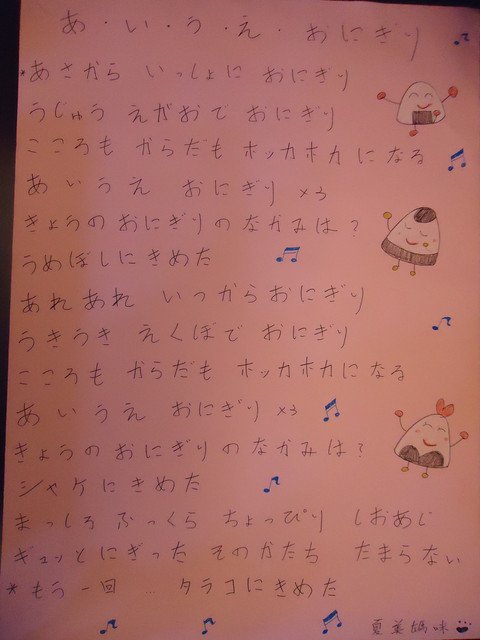 あ・い・う・え・おにぎり
*あさから いっしょに おにぎり
うじゅう えがおで おにぎり
こころも からだも ホッカホカ になる
あ い う え おにぎり ×3
きょうのおにぎりのなかみは?
うめぼしにきめた
あれあれ いつからおにぎり
うきうき えくぼで おにぎり
こころも からだも ホッカホカになる
あ い う え おにぎり ×3
きょうのおにぎりのなかみは?
シャケにきめた
まっしろ ふっくら ちょっぴり しおあじ
ギュッとにぎった そのかたち たまらない
*もう一回 … タラコにきめた
夏美媽咪